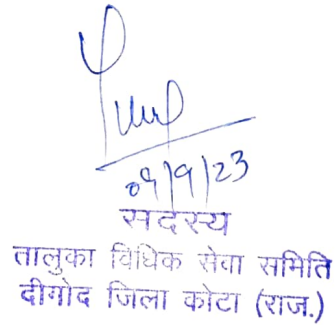 09/9/23
सदस्य
तालुका विधिक सेवा समिति
दीगोद जिला कोटा (राज.)